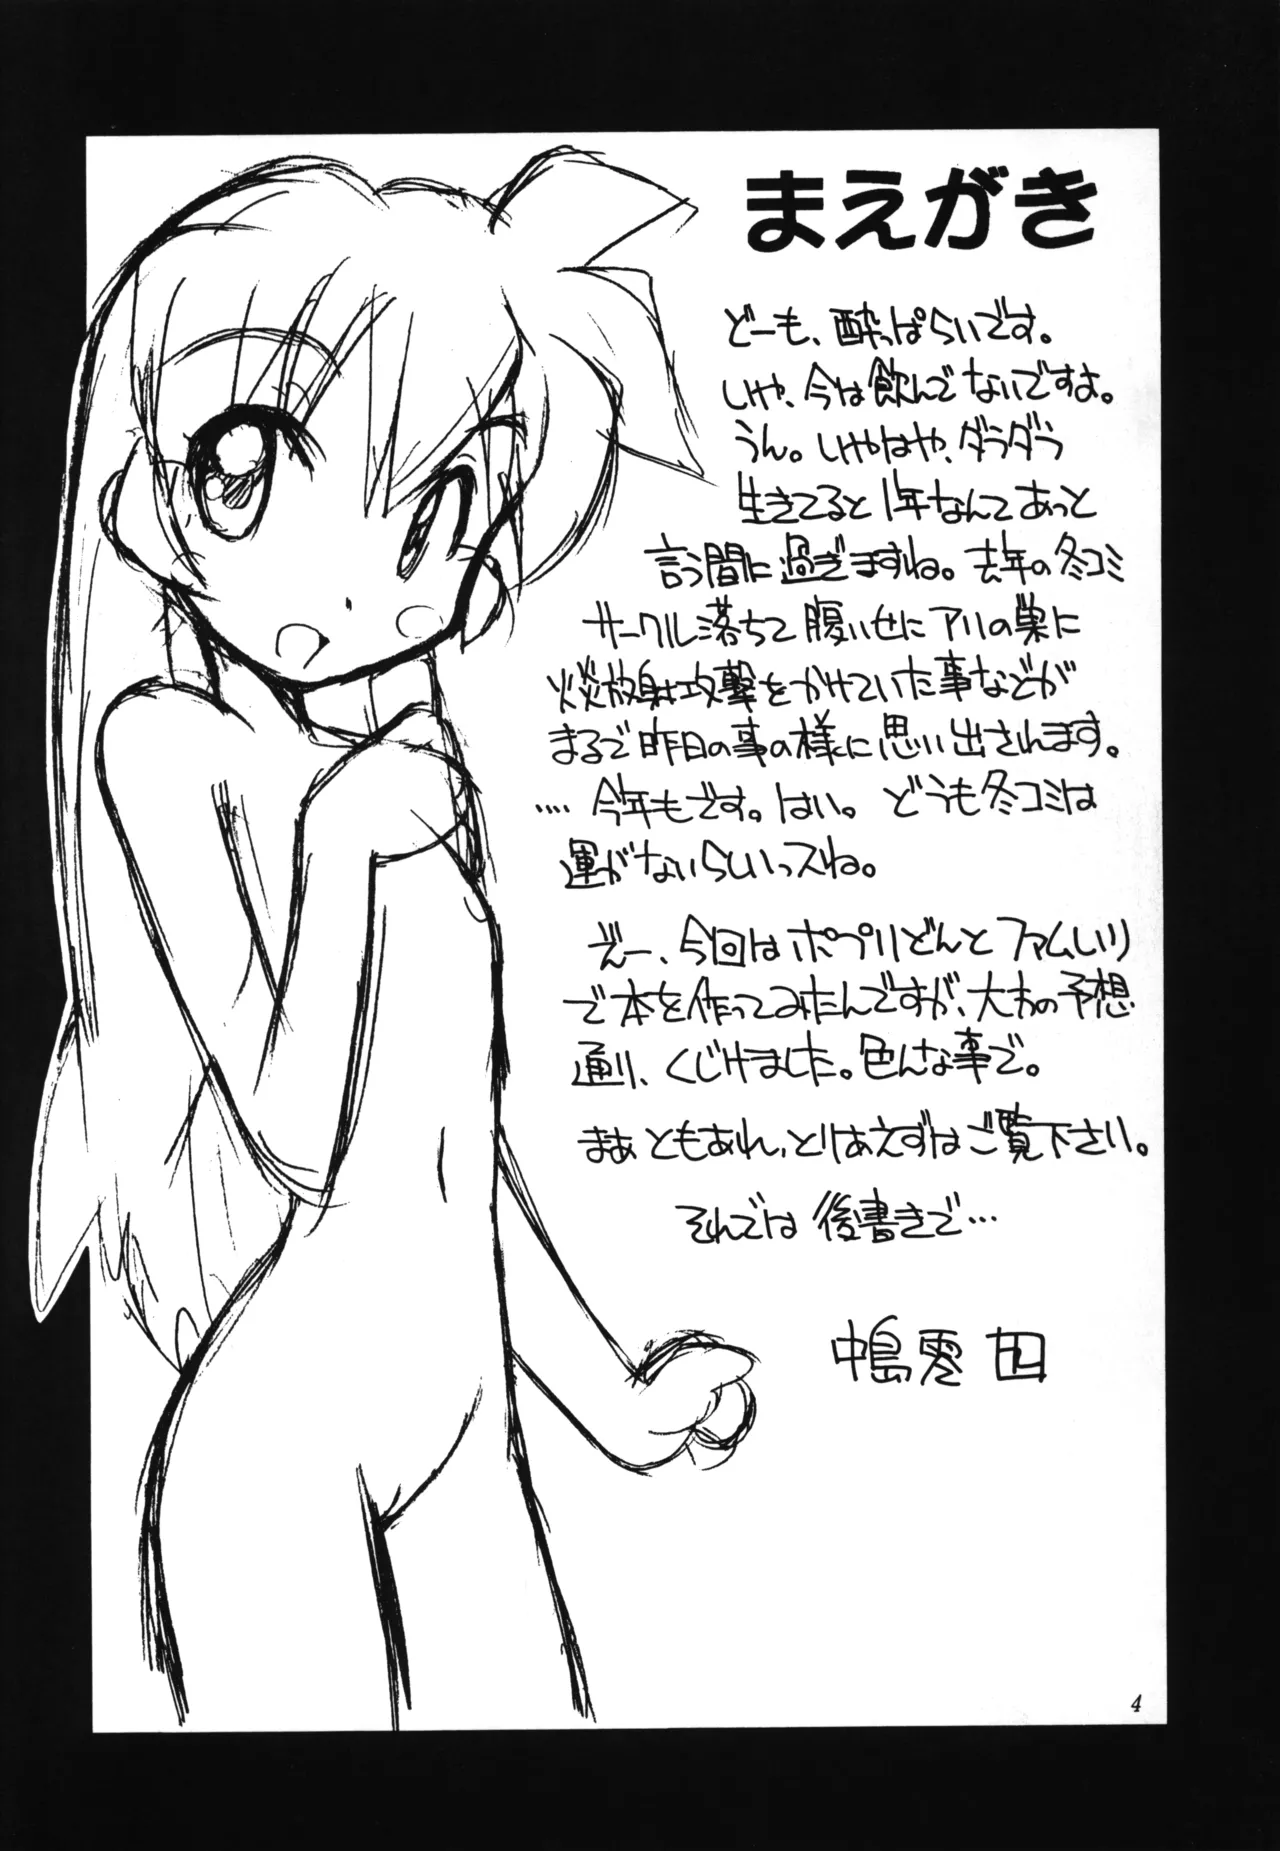 まえがき
どーも、酔っぱらいです。
いや、今は飲んでないですよ。
うん。いやはや、ダラダラ
生きてると1年なんてあっと
言う間に過ぎますね。去年の冬コミ
サークル落ちて腹いせにアリの巣に
火炎放射攻撃をかけていた事などが
まるで昨日の事の様に思い出されます。
‥‥今年もです。はい。どうも冬コミは
運がないらしいっスね。
えー、今回はポプリどんとファムしリ
で本を作ってみたんですが、大方の予想
通り、くじけました。色んな事で。
まぁともあれ、とりあえずはご覧下さい。
それでは後書きで…
中島零
4